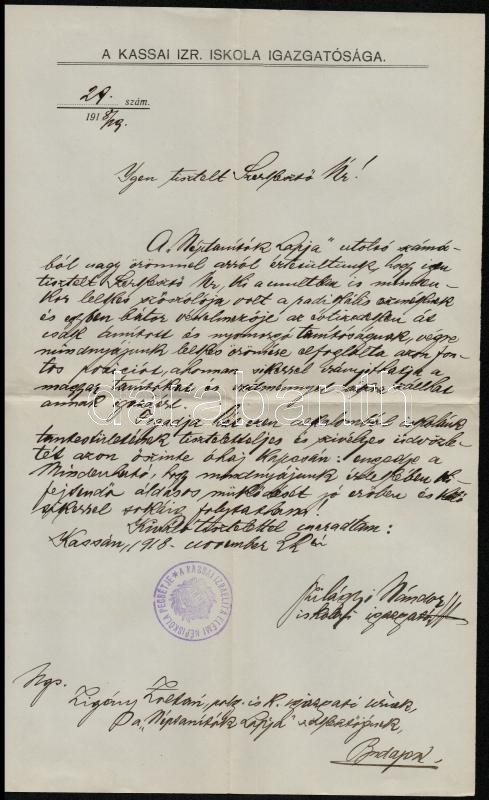 A KASSAI IZR. ISKOLA IGAZGATÓSÁGA.
29. szám.
1918/19.
Igen tisztelt Szerkesztő Úr!
A "Néptanítók Lapja" utolsó számá-
ból nagy örömmel arról értesültünk, hogy igen
tisztelt Szerkesztő Úr, ki a multban is minden-
kor lelkes szószólója volt a radikális eszméknek
és egyben bátor védelmezője az évtizedeken át
csak tanított és nyomorgó tanítóságnak, végre
mindnyájunk lelkes örömére elfoglalta azon fon-
tos pozíciót, ahonnan sikerrel irányíthatja a
magyar tanítókat és
annak
Fogadja ez alkalomból iskolánk
tantestületének tiszteletteljes és szívélyes üdvözle-
tét azon őszinte óhaj kapcsán: engedje a
Mindenható, hogy mindnyájunk érdekében ki-
fejtendő áldásos működését jó erőben és
sikerrel sokáig folytathassa!
Kiváló tisztelettel maradtam:
Kassán, 1918. november
Szilágyi Nándor
iskolai igazgató
A KASSAI IZRAELITA ELEMI NÉPISKOLA PECSÉTJE
darabanth
Ngs.
Zigány Zoltán, polg. isk. igazgató úrnak,
a "Néptanítók Lapja" szerkesztőjének,
Budapest.